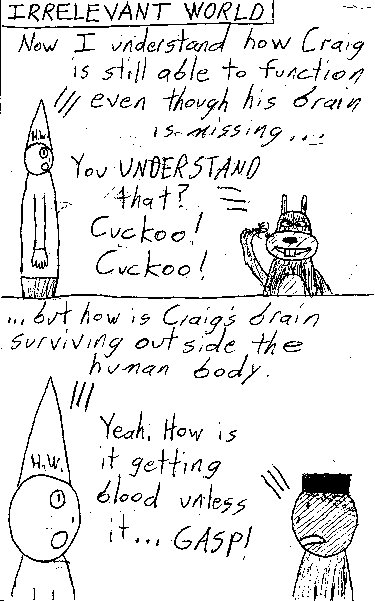 IRRELEVANT WORLD!
Now I understand how Craig
is still able to function
even though his brain
is missing...
H.W.
You UNDERSTAND
that?
Cuckoo!
Cuckoo!
...but how is Craig's brain
surviving outside the
human body.
H.W.
Yeah. How is
it getting
blood unless
it... GASP!